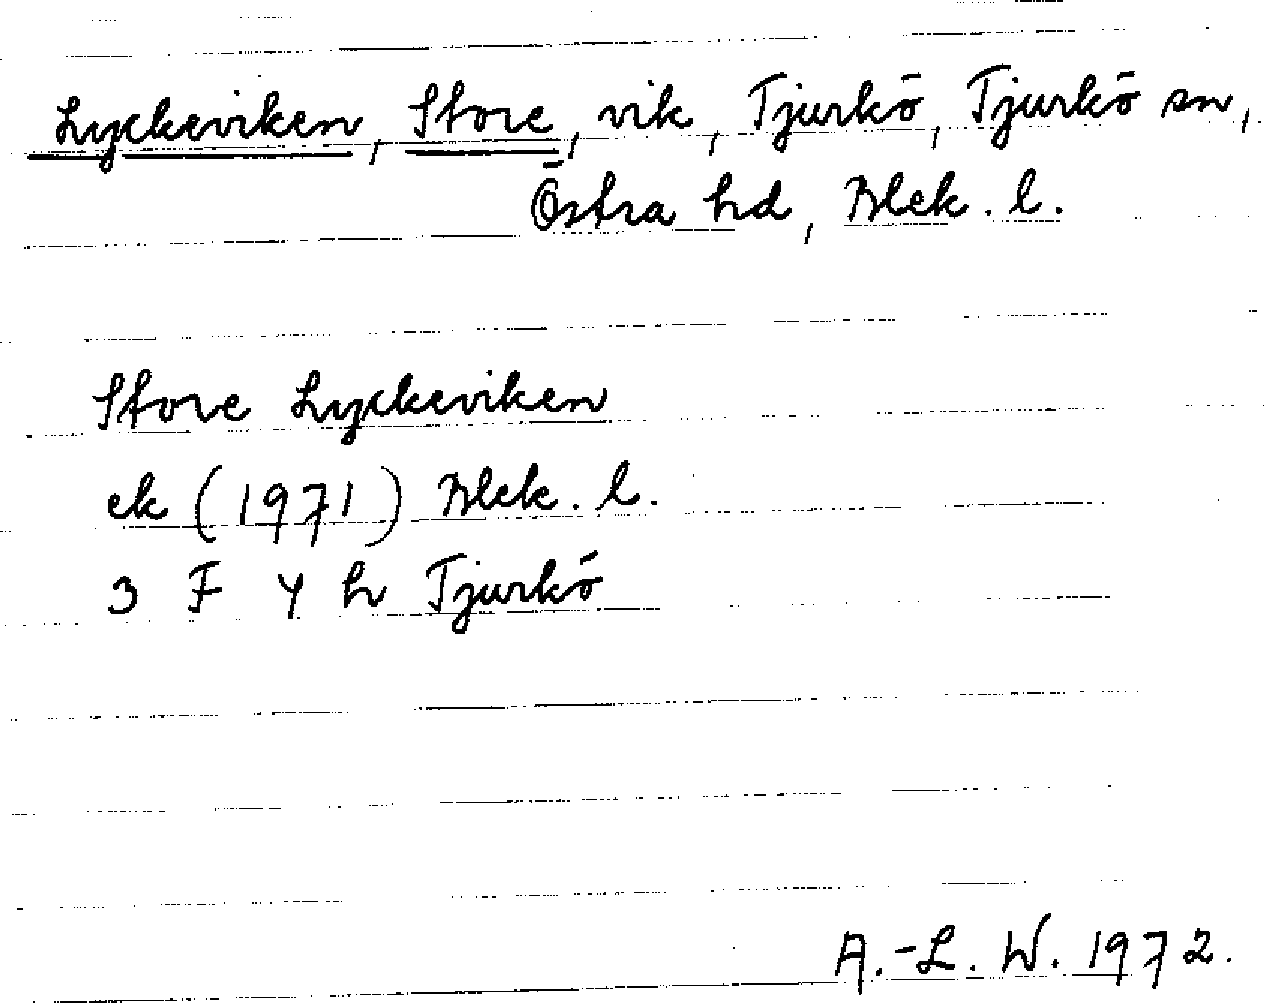 Lyckeviken, Store, vik, Tjurkö, Tjurkö sn,
Östra hd, Blek. l.
Store Lyckeviken
ek (1971) Blek. l.
3 F Y h Tjurkö
A.-L. W. 1972.